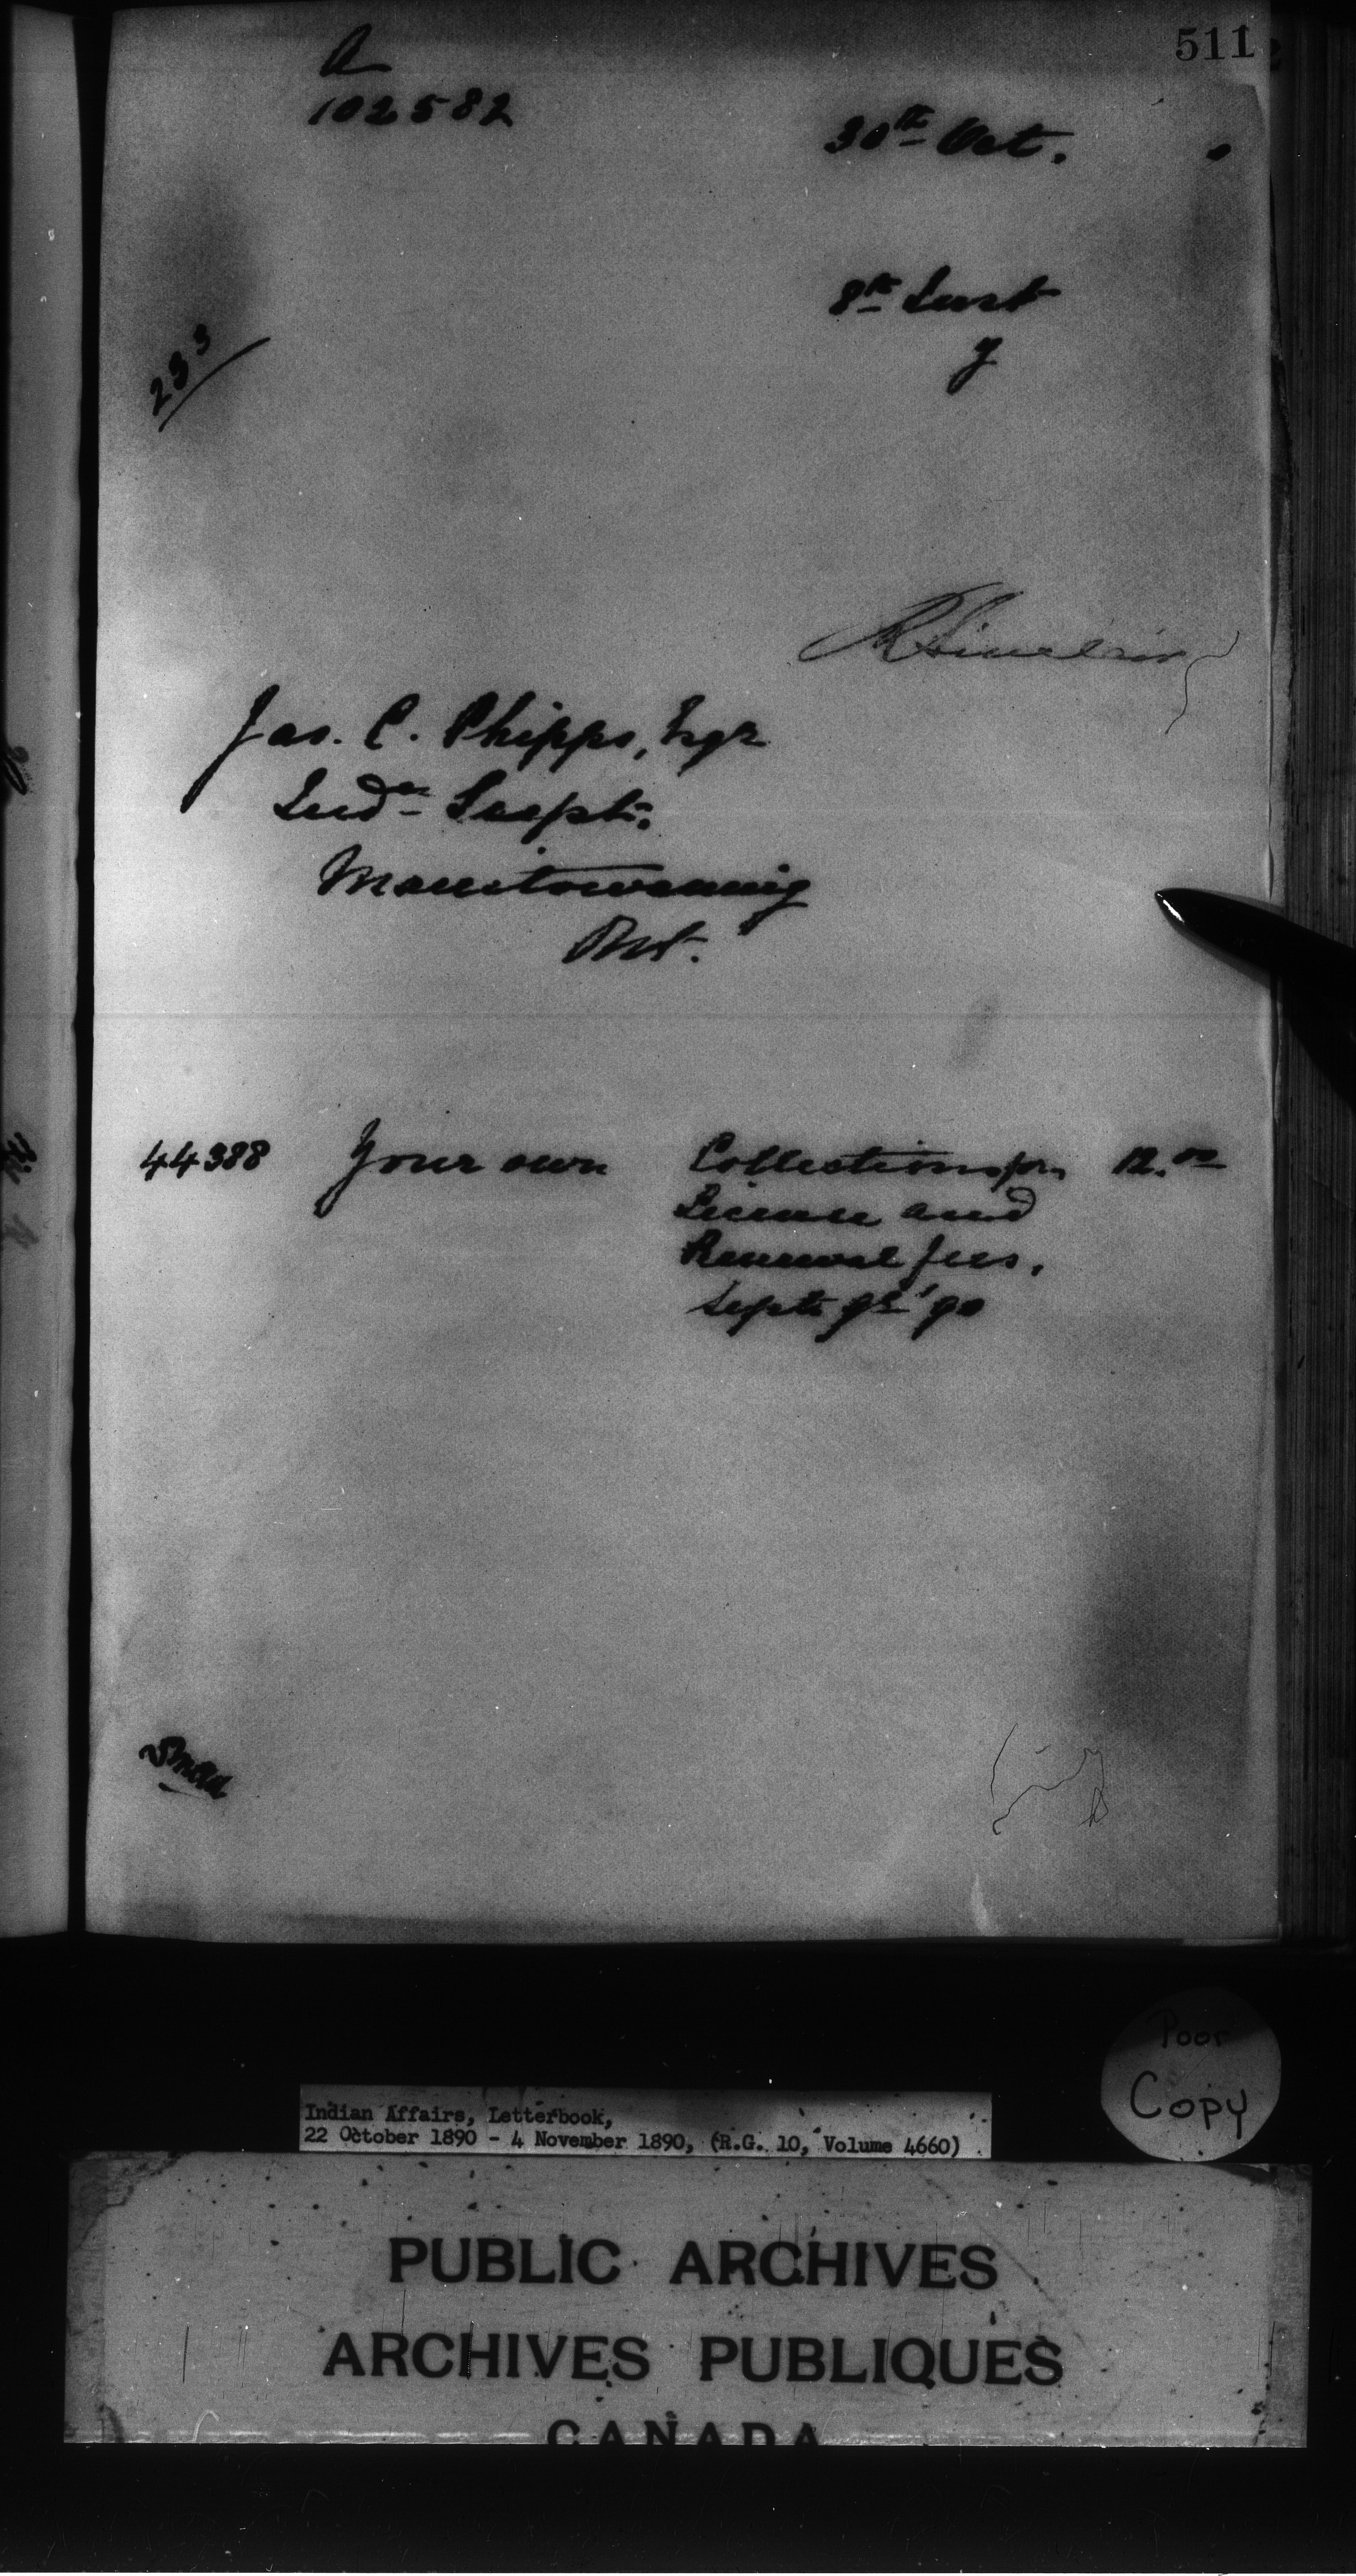 511
A
102582
30th Oct.
8th Inst
y
233
R Sinclair
Jas. C. Phipps, Esqr
Indn Supt.
Manitowaning
Ont.
44388 Your own Collections on 12.00
License and
Renewal fees,
Sept. qr '90
Poor
Copy
Indian Affairs, Letterbook,
22 October 1890 - 4 November 1890, (R.G. 10, Volume 4660)
PUBLIC ARCHIVES
ARCHIVES PUBLIQUES
CANADA